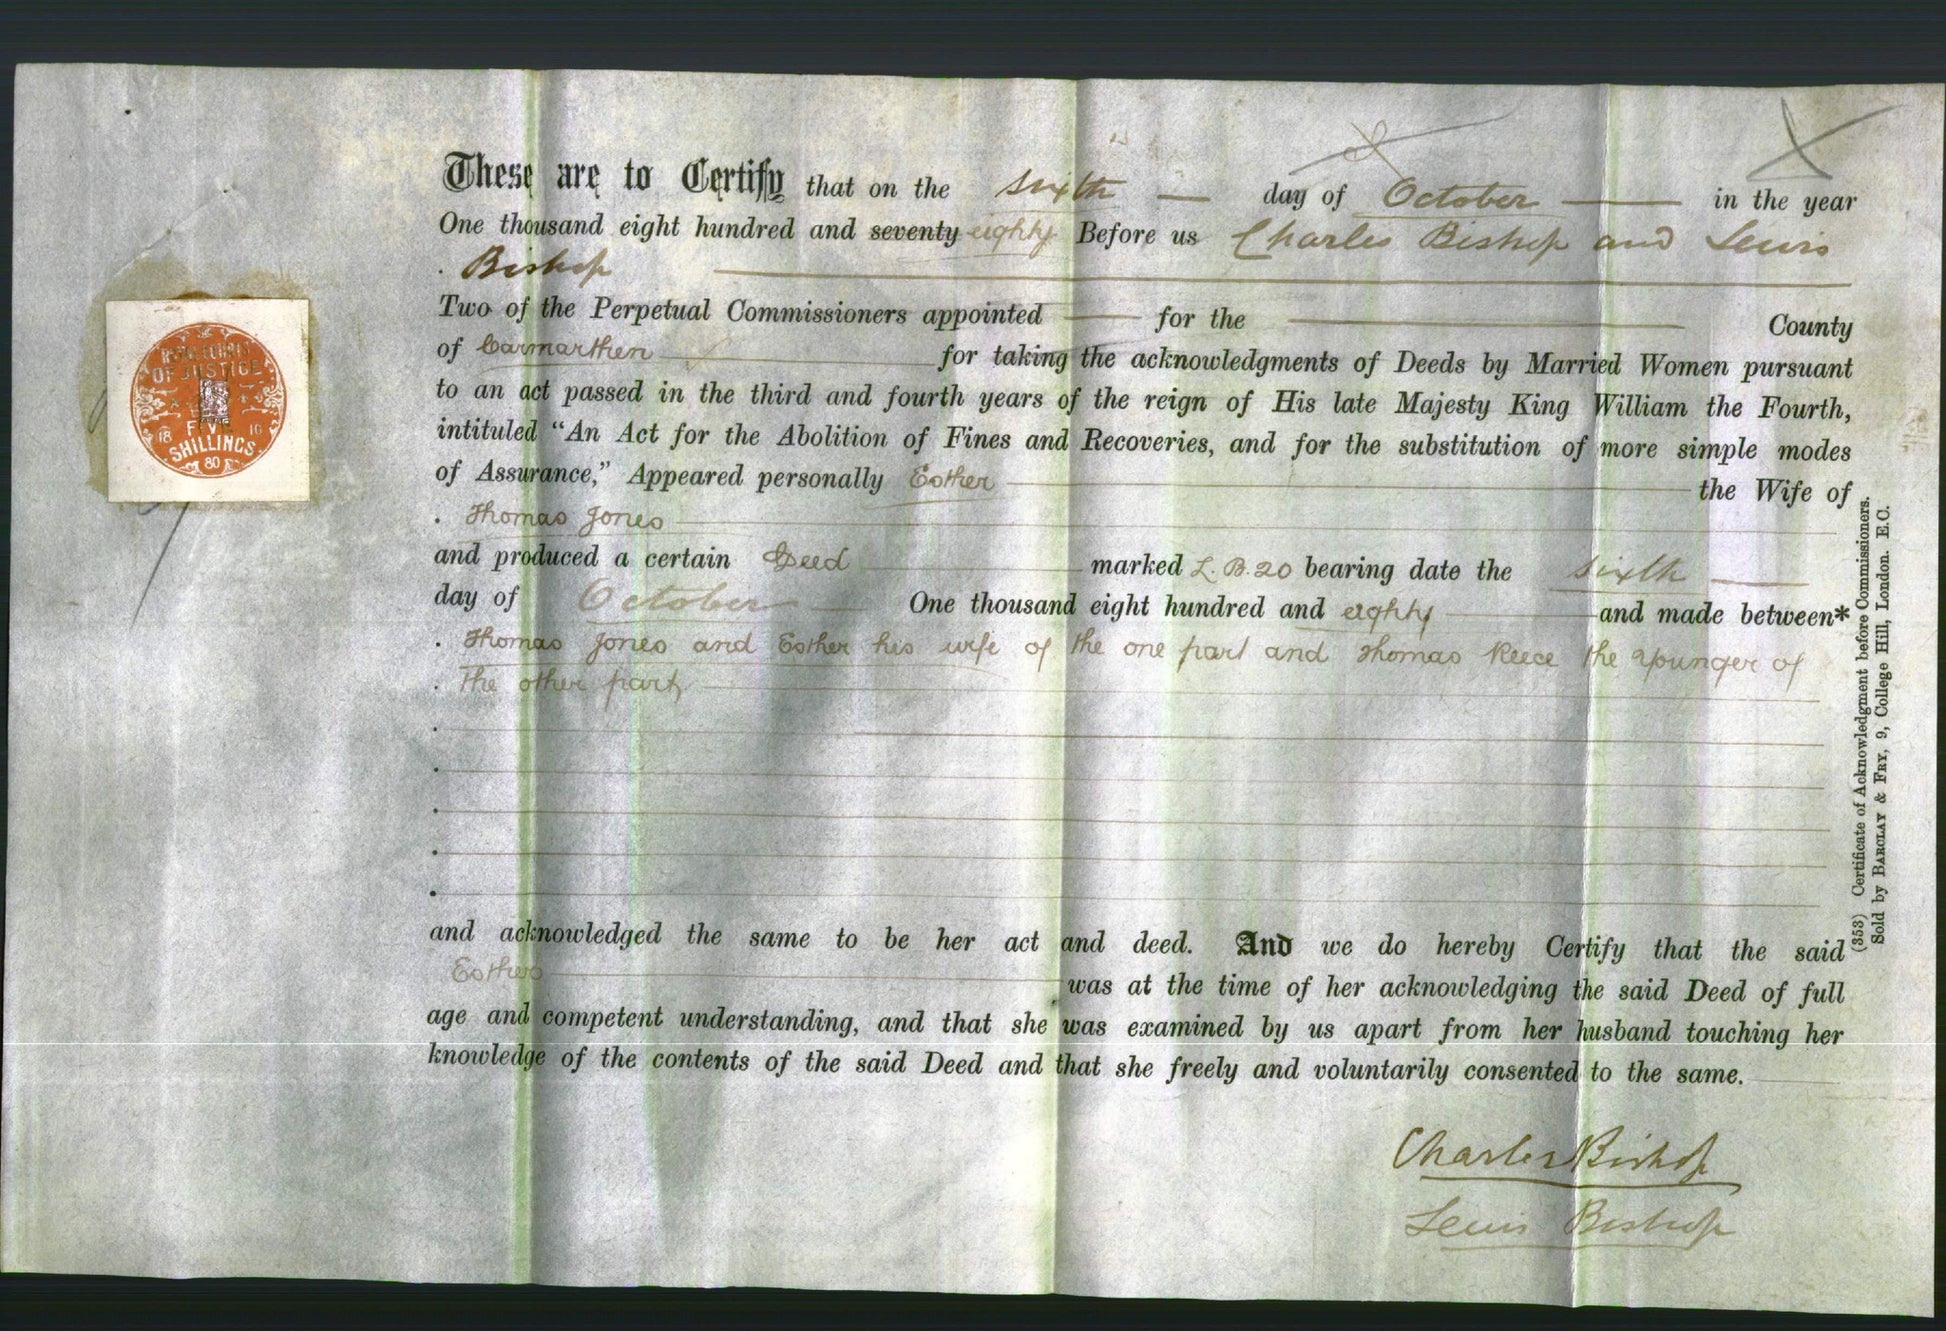 These are to Certify that on the sixth day of October in the year
One thousand eight hundred and seventy eighty Before us Charles Bishop and Lewis
Bishop
Two of the Perpetual Commissioners appointed for the County
of Carmarthen for taking the acknowledgments of Deeds by Married Women pursuant
to an act passed in the third and fourth years of the reign of His late Majesty King William the Fourth,
intituled “An Act for the Abolition of Fines and Recoveries, and for the substitution of more simple modes
of Assurance,” Appeared personally Esther the Wife of
Thomas Jones
and produced a certain Deed marked L.B.20 bearing date the sixth
day of October One thousand eight hundred and eighty and made between*
Thomas Jones and Esther his wife of the one part and Thomas Reece the younger of
the other part
and acknowledged the same to be her act and deed. And we do hereby Certify that the said
Esther was at the time of her acknowledging the said Deed of full
age and competent understanding, and that she was examined by us apart from her husband touching her
knowledge of the contents of the said Deed and that she freely and voluntarily consented to the same.
Charles Bishop
Lewis Bishop
(353) Certificate of Acknowledgment before Commissioners.
Sold by BARCLAY & FRY, 9, College Hill, London. E.C.
OF JUSTICE
FIVE
18 10
SHILLINGS
80